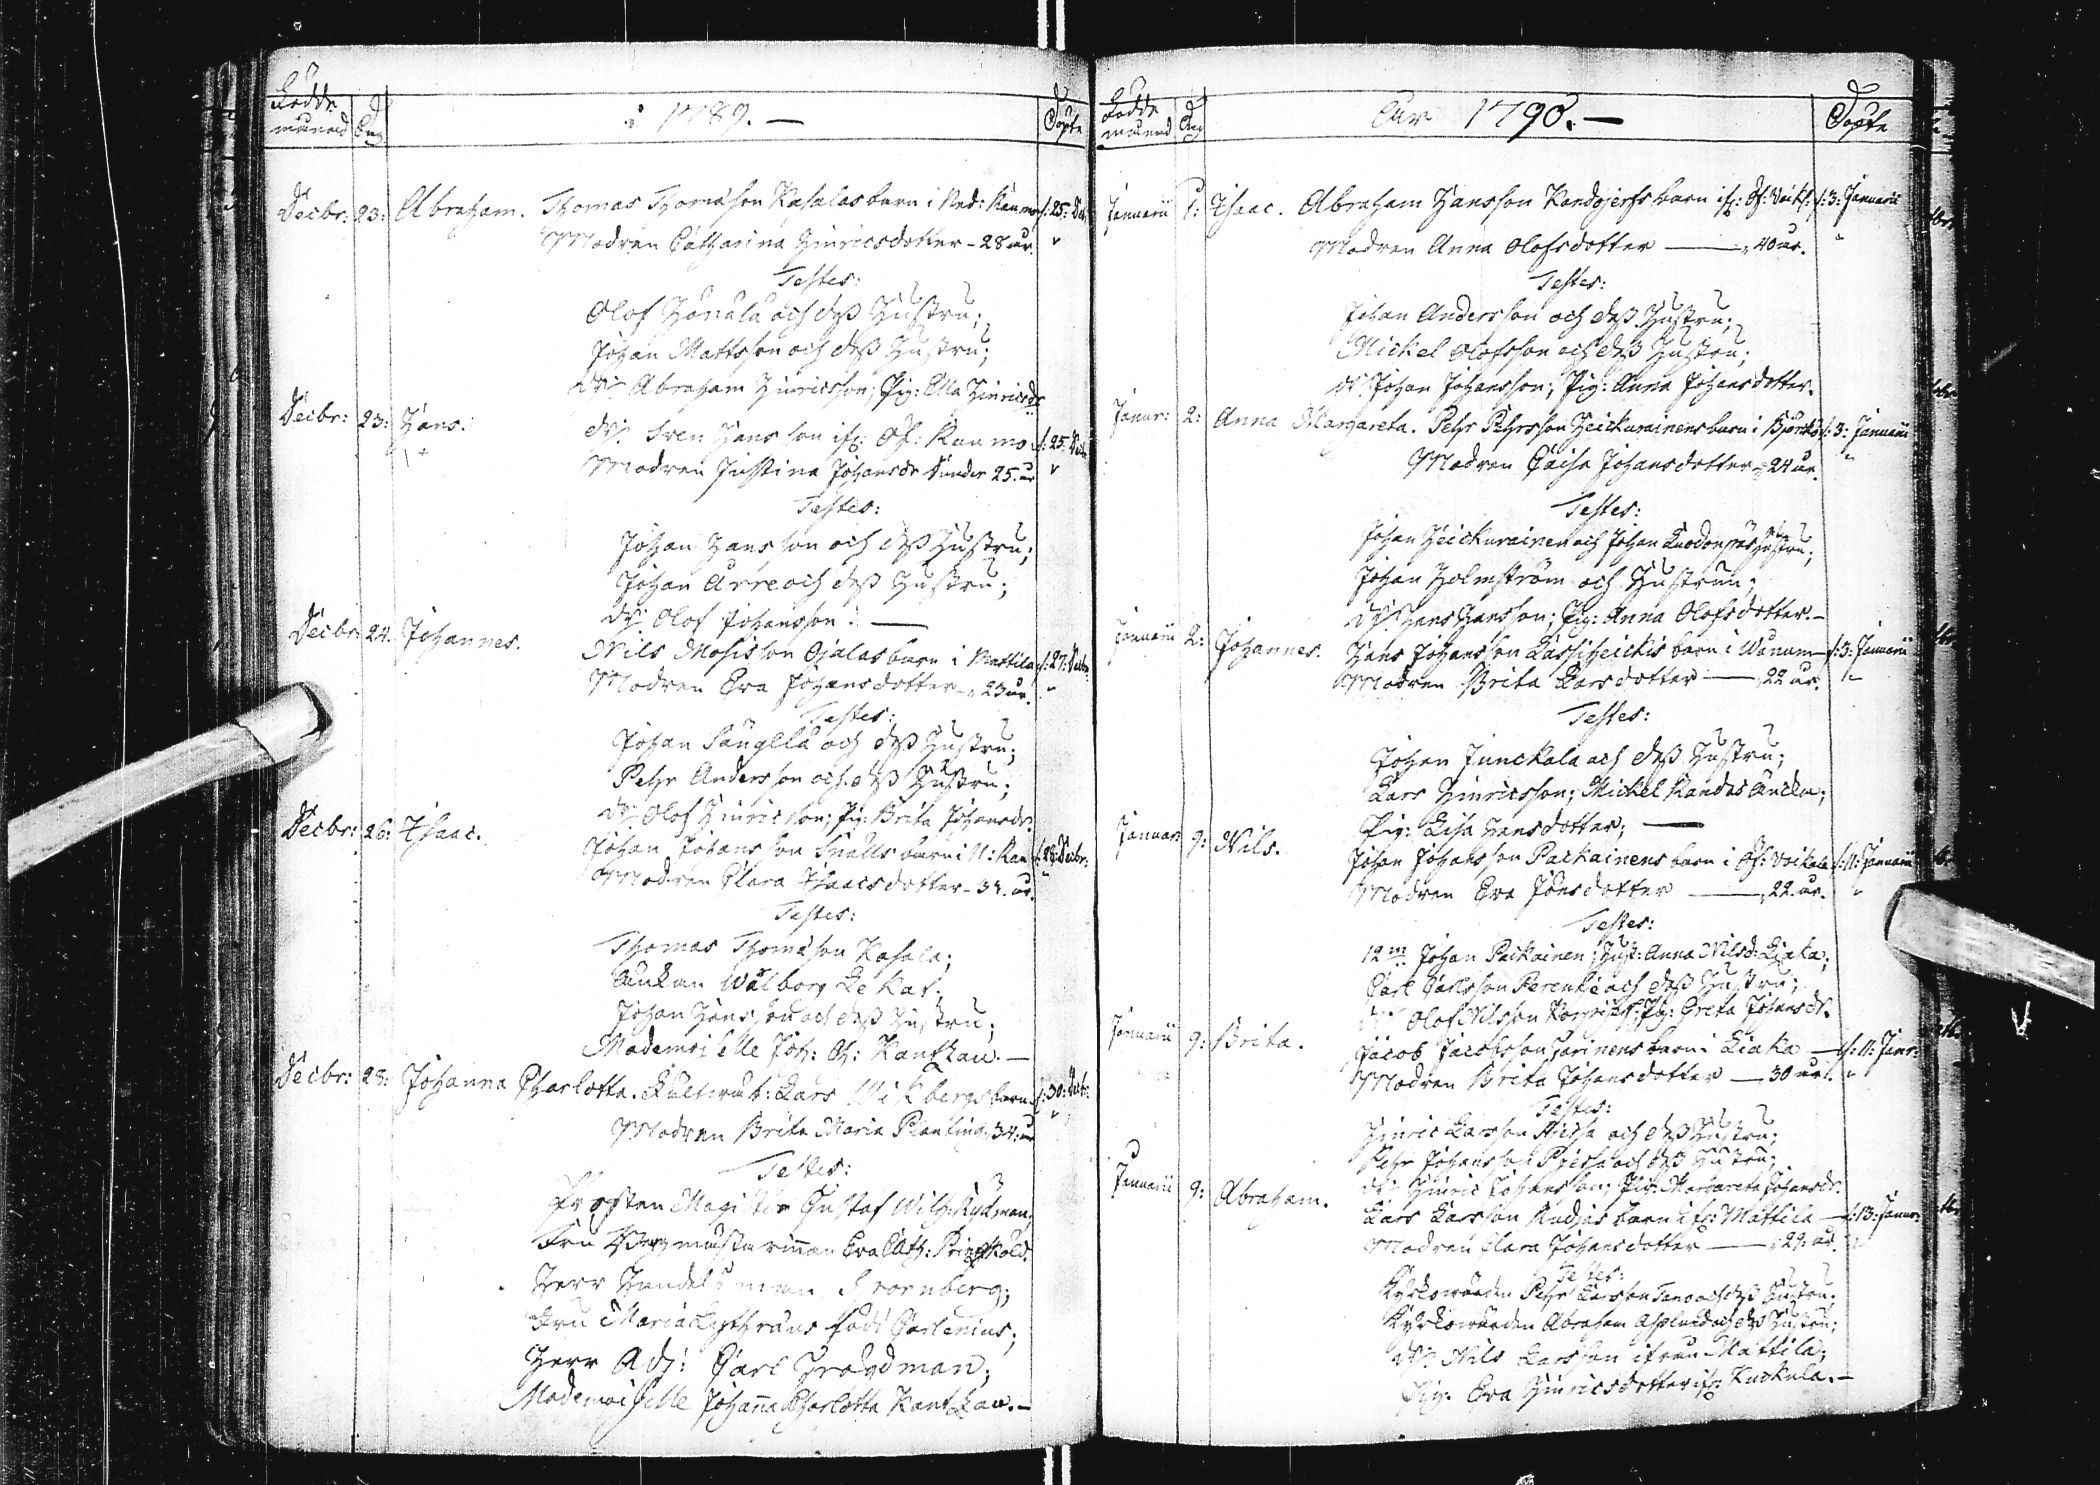 Födde
månad Dag i 1789.— Döpte
Decbr: 23: Abraham. Thomas Thomasson Kasalas barn i Ned: Kaumo d: 25: Decb.
Modren Catharina Hinricsdotter - 28 år.
Testes:
Olof Hånula och dess Hustru;
Johan Mattsson och dess Hustru;
Dr: Abraham Hinricsson; Pig: Ella Hinricsdr
Decbr: 23: Hans. Dr: Sven Hansson ifr: Öf: Kaumo d: 25: Decb.
Modren Justina Johansdr Sunder 25. år
Testes:
Johan Hansson och dess Hustru;
Johan Arre och dess Hustru;
Dr: Olof Johansson. —
Decbr: 24. Johannes. Nils Mosisson Ojalas barn i Mattila d: 27: Decbr.
Modren Eva Johansdotter - 23 år.
Testes:
Johan och dess Hustru;
Pehr Andersson och dess Hustru;
Dr: Olof Hinricsson; Pig: Brita Johansdr.
Decbr: 26: Isaac. Johan Johansson Snälls barn i N: Kau d: 28: Decbr:
Modren Clara Isaacsdotter - 34. år.
Testes:
Thomas Thomasson Kasala;
Änkan Walborg
Johan Hansson och dess Hustru;
Mademoiselle Joh: Ch: Kantzau. —
Decbr: 28: Johanna Charlotta. Lars Wikbergs barn d: 30: Decbr:
Modren Brita Maria Planting 34: år
Testes:
Magister Gustaf Wilh: Rydman,
Fru Eva Cath:
Herr Handelsman Gvornberg;
Fru Maria Lythräus född Carlenius;
Herr Adj: Carl
Mademoiselle Johanna Charlotta Kantzau. —
Födde
månad Dag Åhr 1790.— Döpte
Januarii 1: Isaac. Abraham Hansson Kandojerfs barn ifr: Öf: Voik: d: 3: Januarii
Modren Anna Olofsdotter —— 40 år.
Testes:
Johan Andersson och dess Hustru;
Mickel Olofsson och dess Hustru;
Dr: Johan Johansson; Pig: Anna Johansdotter.
Januar: 2: Anna Margareta. Pehr Pehrsson Heickurainens barn i Björkö d: 3: Januarii
Modren Caisa Johansdotter - 24 år.
Testes:
Johan Heickurainen och Johan Hustru;
Johan Holmström och Hustrun;
Dr: Hans Hansson; Pig: Anna Olofsdotter. —
Januarii 2: Johannes. Hans Johansson Lassiheickis barn i Wånum d: 3: Januarii
Modren Brita Larsdotter —— 22 år.
Testes:
Johan Junckala och dess Hustru;
Lars Hinricsson; Mickel Kandos Encka;
Pig: Lisa Hansdotter; —
Januar: 9: Nils. Johan Johansson Packainens barn i Öf: Voikala d: 11: Januarii
Modren Eva Jönsdotter —— 22. år.
Testes:
12m Johan Packainen; Hust: Anna Nilsd: Liaka;
Carl Carlsson Perentie och dess Hustru;
Dr: Olof Nilsson Pig: Greta Johansdr.
Januarii 9: Brita. Jacob Jacobsson Jarinens barn i Liaka d: 11: Janr:
Modren Brita Johansdotter — 30 år.
Testes:
Hinric Larsson och dess Hustru;
Pehr Johansson och dess Hustru;
Dr: Hinric Johansson; Pig: Margareta Johansdr.
Januarii 9: Abraham. Lars Larsson Rudjas barn ifr: Mattila d: 13: Januar:
Modren Clara Johansdotter —— 29: år.
Testes:
Kyrkowärden Pehr Larsson Tano och dess Hustru;
Kyrkowärden Abraham Asplund och dess Hustru;
Dr: Nils Larsson ifrån Mattila;
Pig: Eva Hinricsdotter ifr: Kuckula. —